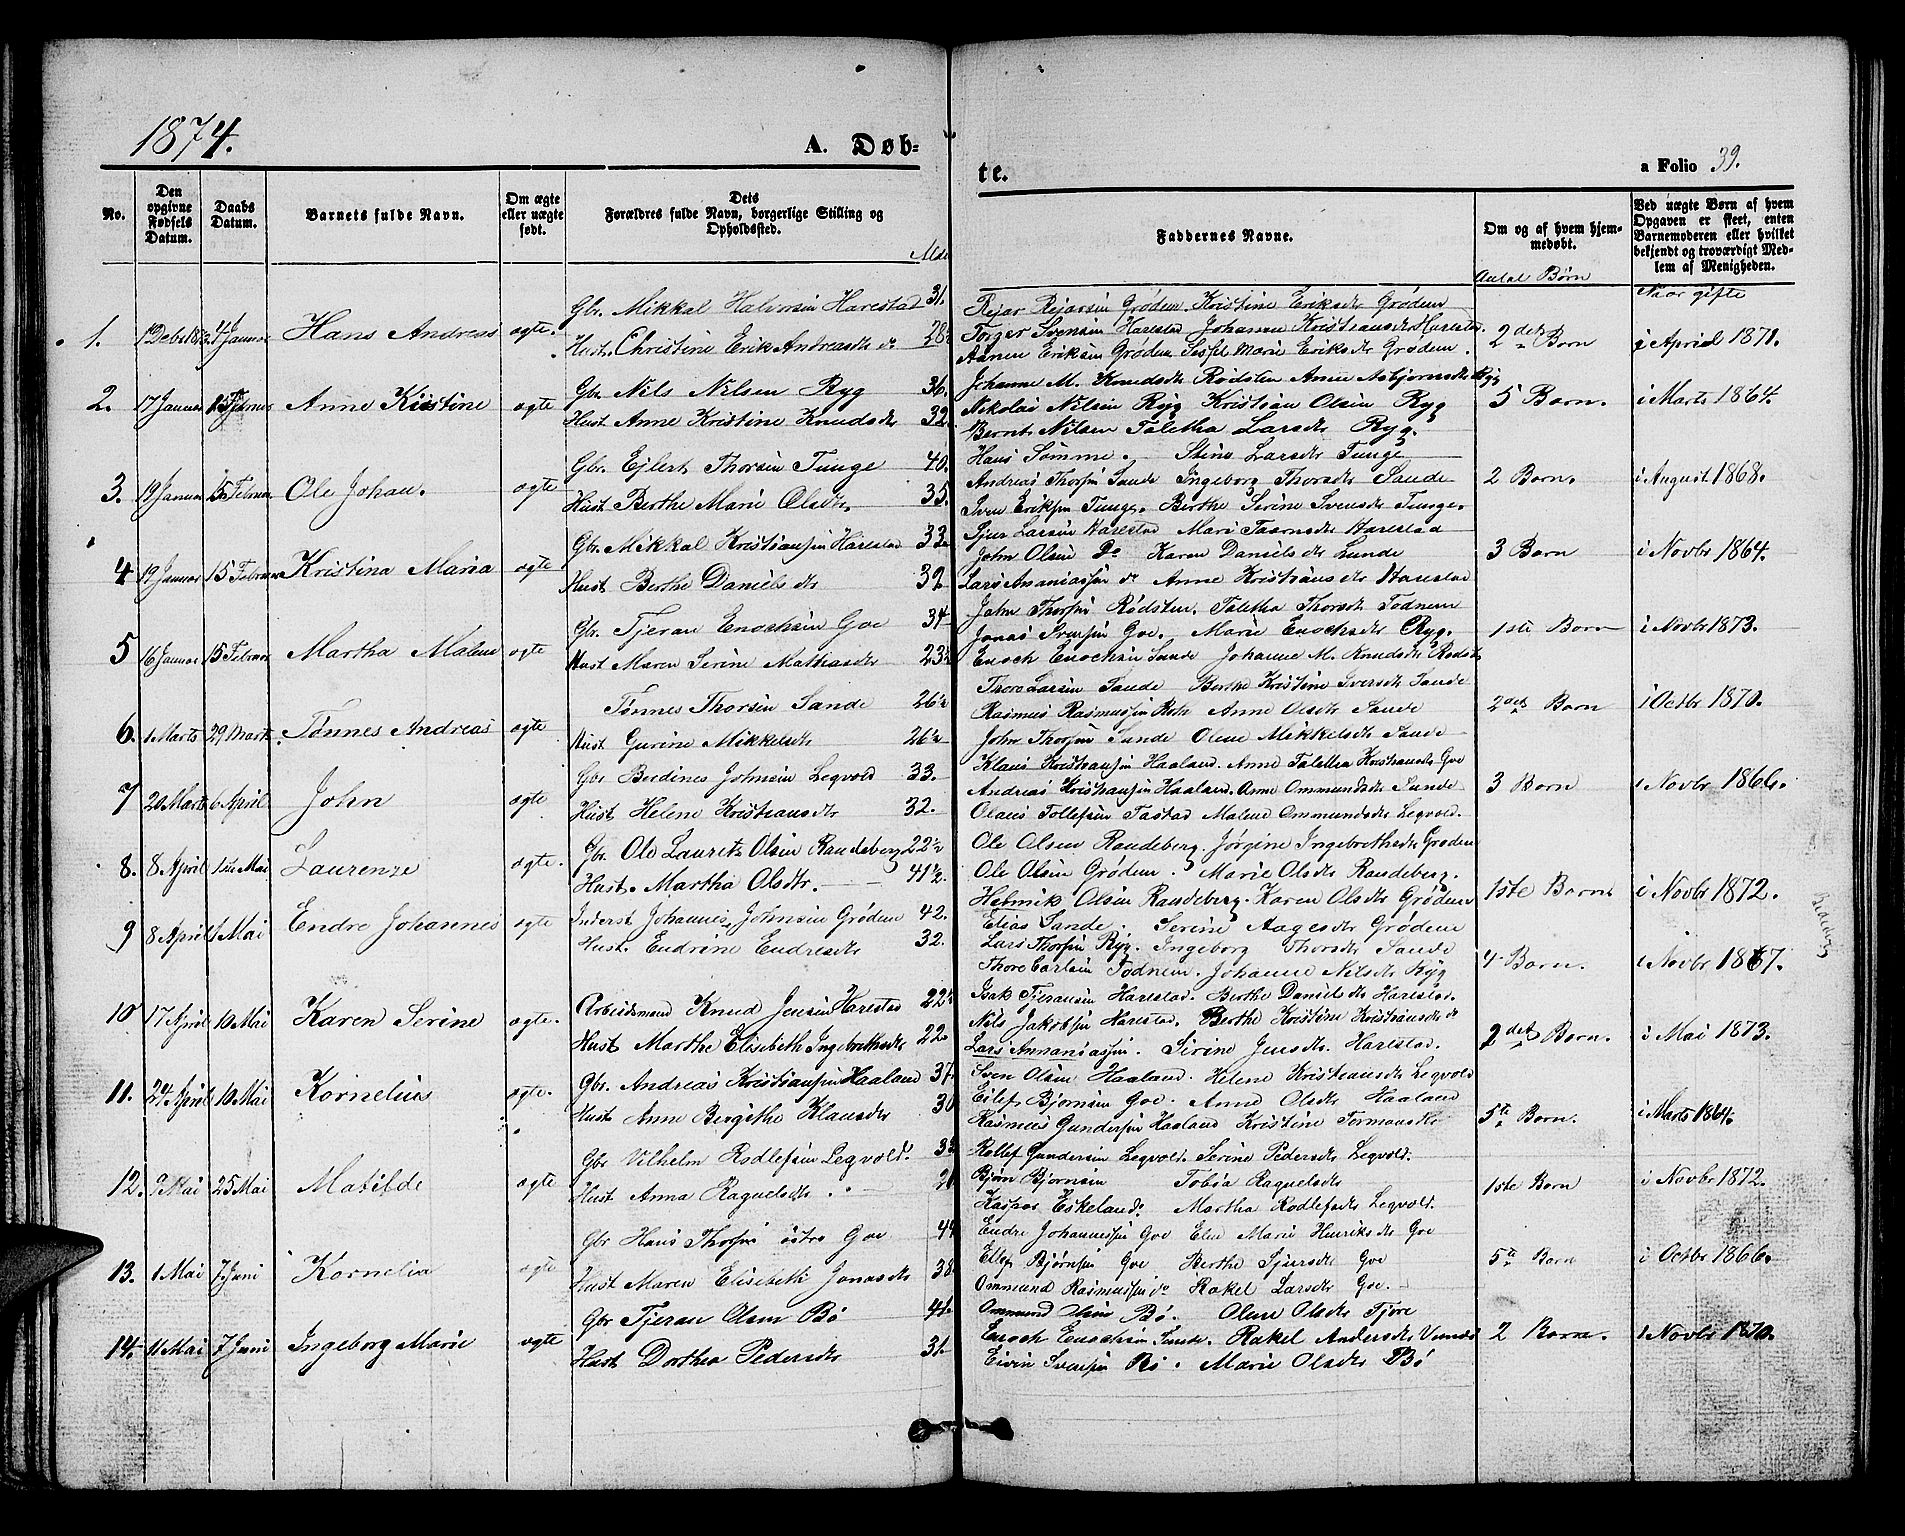 1874.
A. Døb-
te.
a Folio 39.
No.
Den opgivne Fødsels Datum.
Daabs Datum.
Barnets fulde Navn.
Om ægte eller uægte født.
Dets Forældres fulde Navn, borgerlige Stilling og Opholdssted.
Faddernes Navne.
Om og af hvem hjemmedøbt.
Antal Børn
Ved uægte Børn af hvem Opgaven er skeet, enten Barnemoderen eller hvilket bekjendt og troværdigt Medlem af Menigheden.
Naar gifte
1. 4 Januar Hans Andreas ægte.
Gbr. Mikkal Halvorsen Harestad 31.
Hust. Christine Erik Andreasdtr do 28
Rejar Rejarsen Grødem. Kristine Eriksdtr Grødem
Torger Svensen Harestad Johanne Kristiansdtr Harestad.
Eriksen Grødem Marie Eriksdtr Grødem.
2det Barn
i April 1871.
2. 17 Januar Anne Kristine ægte
Gbr. Nils Nilsen Ryg 36.
Hust Anne Kristine Knudsdtr 32
Johanne M. Knudsdtr Rødsten Anne Asbjørnsdtr Ryg
Nikolai Nilsen Ryg Kristian Olsen Ryg
Bernt Nilsen Taletha Larsdtr Ryg.
5 Barn.
i Marts 1864.
3. 19 Januar 15 Februar Ole Johan. ægte
Gbr. Ejlert Thorsen Tunge 40.
Hust Berthe Marie Olsdtr. 35.
Hans Sømme. Stine Larsdtr Tunge
Andreas Thorsen Sande Ingeborg Thorsdtr Sande
Sven Eriksen Tunge. Berthe Serine Svensdtr Tunge.
2 Barn.
i August 1868.
4 19 Januar 15 Februar Kristina Maria ægte
Gbr. Mikkal Kristiansen Harestad 33
Hust Berthe Daniels dtr 32
Sjur Larsen Harestad Mari Harestad
John Olsen Do Karen Daniels dtr Sunde
Lars Ananiassen do Anne Kristians dtr Harestad
3 Barn
i Novbr 1864.
5 16 Januar 15 Februar Martha Malene ægte
Gbr. Tjeran Enochsen Goe 34
Hust Maren Serine Mathiasdtr 23½
John Thorsen Rødsten. Taletha Thorsdtr Todnem
Jonas Svensen Goe. Marie Enochsdtr Ryg.
Enoch Enochsen Sande Johanne M. Knudsdtr Rødsten
1ste Barn
i Novbr 1873.
6. 1 Marts 29 Marts. Tønnes Andreas ægte
Tønnes Thorsen Sande 26½
Hust Gurine Mikkelsdtr 26½
Thore Larsen Sande Berthe Kristine Iversdtr Sande
Rasmus Rasmussen Anne Olsdtr Sande
John Thorsen Sande Oline Mikkelsdtr Sande
2det Barn
i Octbr 1870.
7 20 Marts 6 April John ægte
Gbr Budines Johnsen Legvold 33.
Hust Helene Kristiansdtr 32.
Klaus Kristiansen Haaland. Anne Taletha Kristiansdtr Goe
Andreas Kristiansen Haaland. Anne Ommundsdtr Sande
Olaus Tollefsen Tastad Malene Ommundsdtr Legvold.
3 Barn
i Novbr 1866.
8. 8 April 1ste Mai Laurenze ægte.
Gbr. Ole Lauretz Olsen Randeberg 22½
Hust. Martha Olsdtr. 41½.
Ole Olsen Randeberg. Jørgine Ingebrethsdtr Grødem
Ole Olsen Grødem. Marie Olsdtr Randeberg.
Helmik Olsen Randeberg. Karen Olsdtr Grødem
1ste Barn
i Novbr 1872.
9 8 April 1 Mai Endre Johannes ægte
Inderst Johannes Johnsen Grødem 42.
Hust. Endrine Endresdtr 32.
Elias Sande. Serine Aagesdtr Grødem
Lars Thorsen Ryg. Ingeborg Thorsdtr Sande
Thore Carlsen Todnem. Johanne Nilsdtr Ryg
4 Barn.
i Novbr 1867.
10 17 April 10 Mai Karen Serine ægte.
Arbeidsmand Knud Jensen Harestad 22½
Hust Marthe Elisebeth Ingebrethsdtr 22.
Isak Tjeransen Harestad. Berthe Daniels dtr Harestad.
Nils Jakobsen Harestad. Berthe Kristine Kristiansdtr do
Lars Annaniassen. Serine Jensdtr. Harestad.
2det Barn.
i Mai 1873.
11. 24 April 10 Mai Kornelius ægte.
Gbr. Andreas Kristiansen Haaland 37.
Hust Anne Bergithe Klausdtr 30
Sven Olsen Haaland. Helene Kristiansdtr Legvold
Eilef Bjørnsen Goe. Anne Olsdtr Haaland
Rasmus Gundersen Haaland Kristine Tormansdtr
5te Barn.
i Marts 1864.
12. 9 Mai 25 Mai Matilde ægte
Gbr Vilhelm Rodlefsen Legvold. 33
Hust Anna Raquelsdtr
Rollef Gundersen Legvold. Serine Pedersdtr Legvold.
Bjørn Bjørnsen Tobia Raquelsdtr
Kaspar Eskeland. Martha Rodlefsdtr Legvold.
1ste Barn
i Novbr 1872.
13. 1 Mai 7 Juni Kornelia ægte
Gbr Hans Thorsen østre Goe
Hust Maren Elisebeth Jonasdtr 38.
Endre Johannessen Goe Elen Marie Henriksdtr Goe
Ellef Bjørnsen Goe Berthe Sjursdtr Goe
Ommund Rasmussen do Rakel Larsdtr Goe.
5te Barn
i Octbr 1866.
14. 11 Mai 7 Juni Ingeborg Marie ægte
Gbr Tjeran Olsen Bø
Hust Dorthea Pedersdtr 31.
Ommund Olsen Bø. Oline Olsdtr Tjøre
Enoch Enochsen Sande. Rakel Andersdtr
Eivin Svensen Bø. Marie Olsdtr Bø
2 Barn.
i Novbr 1870.